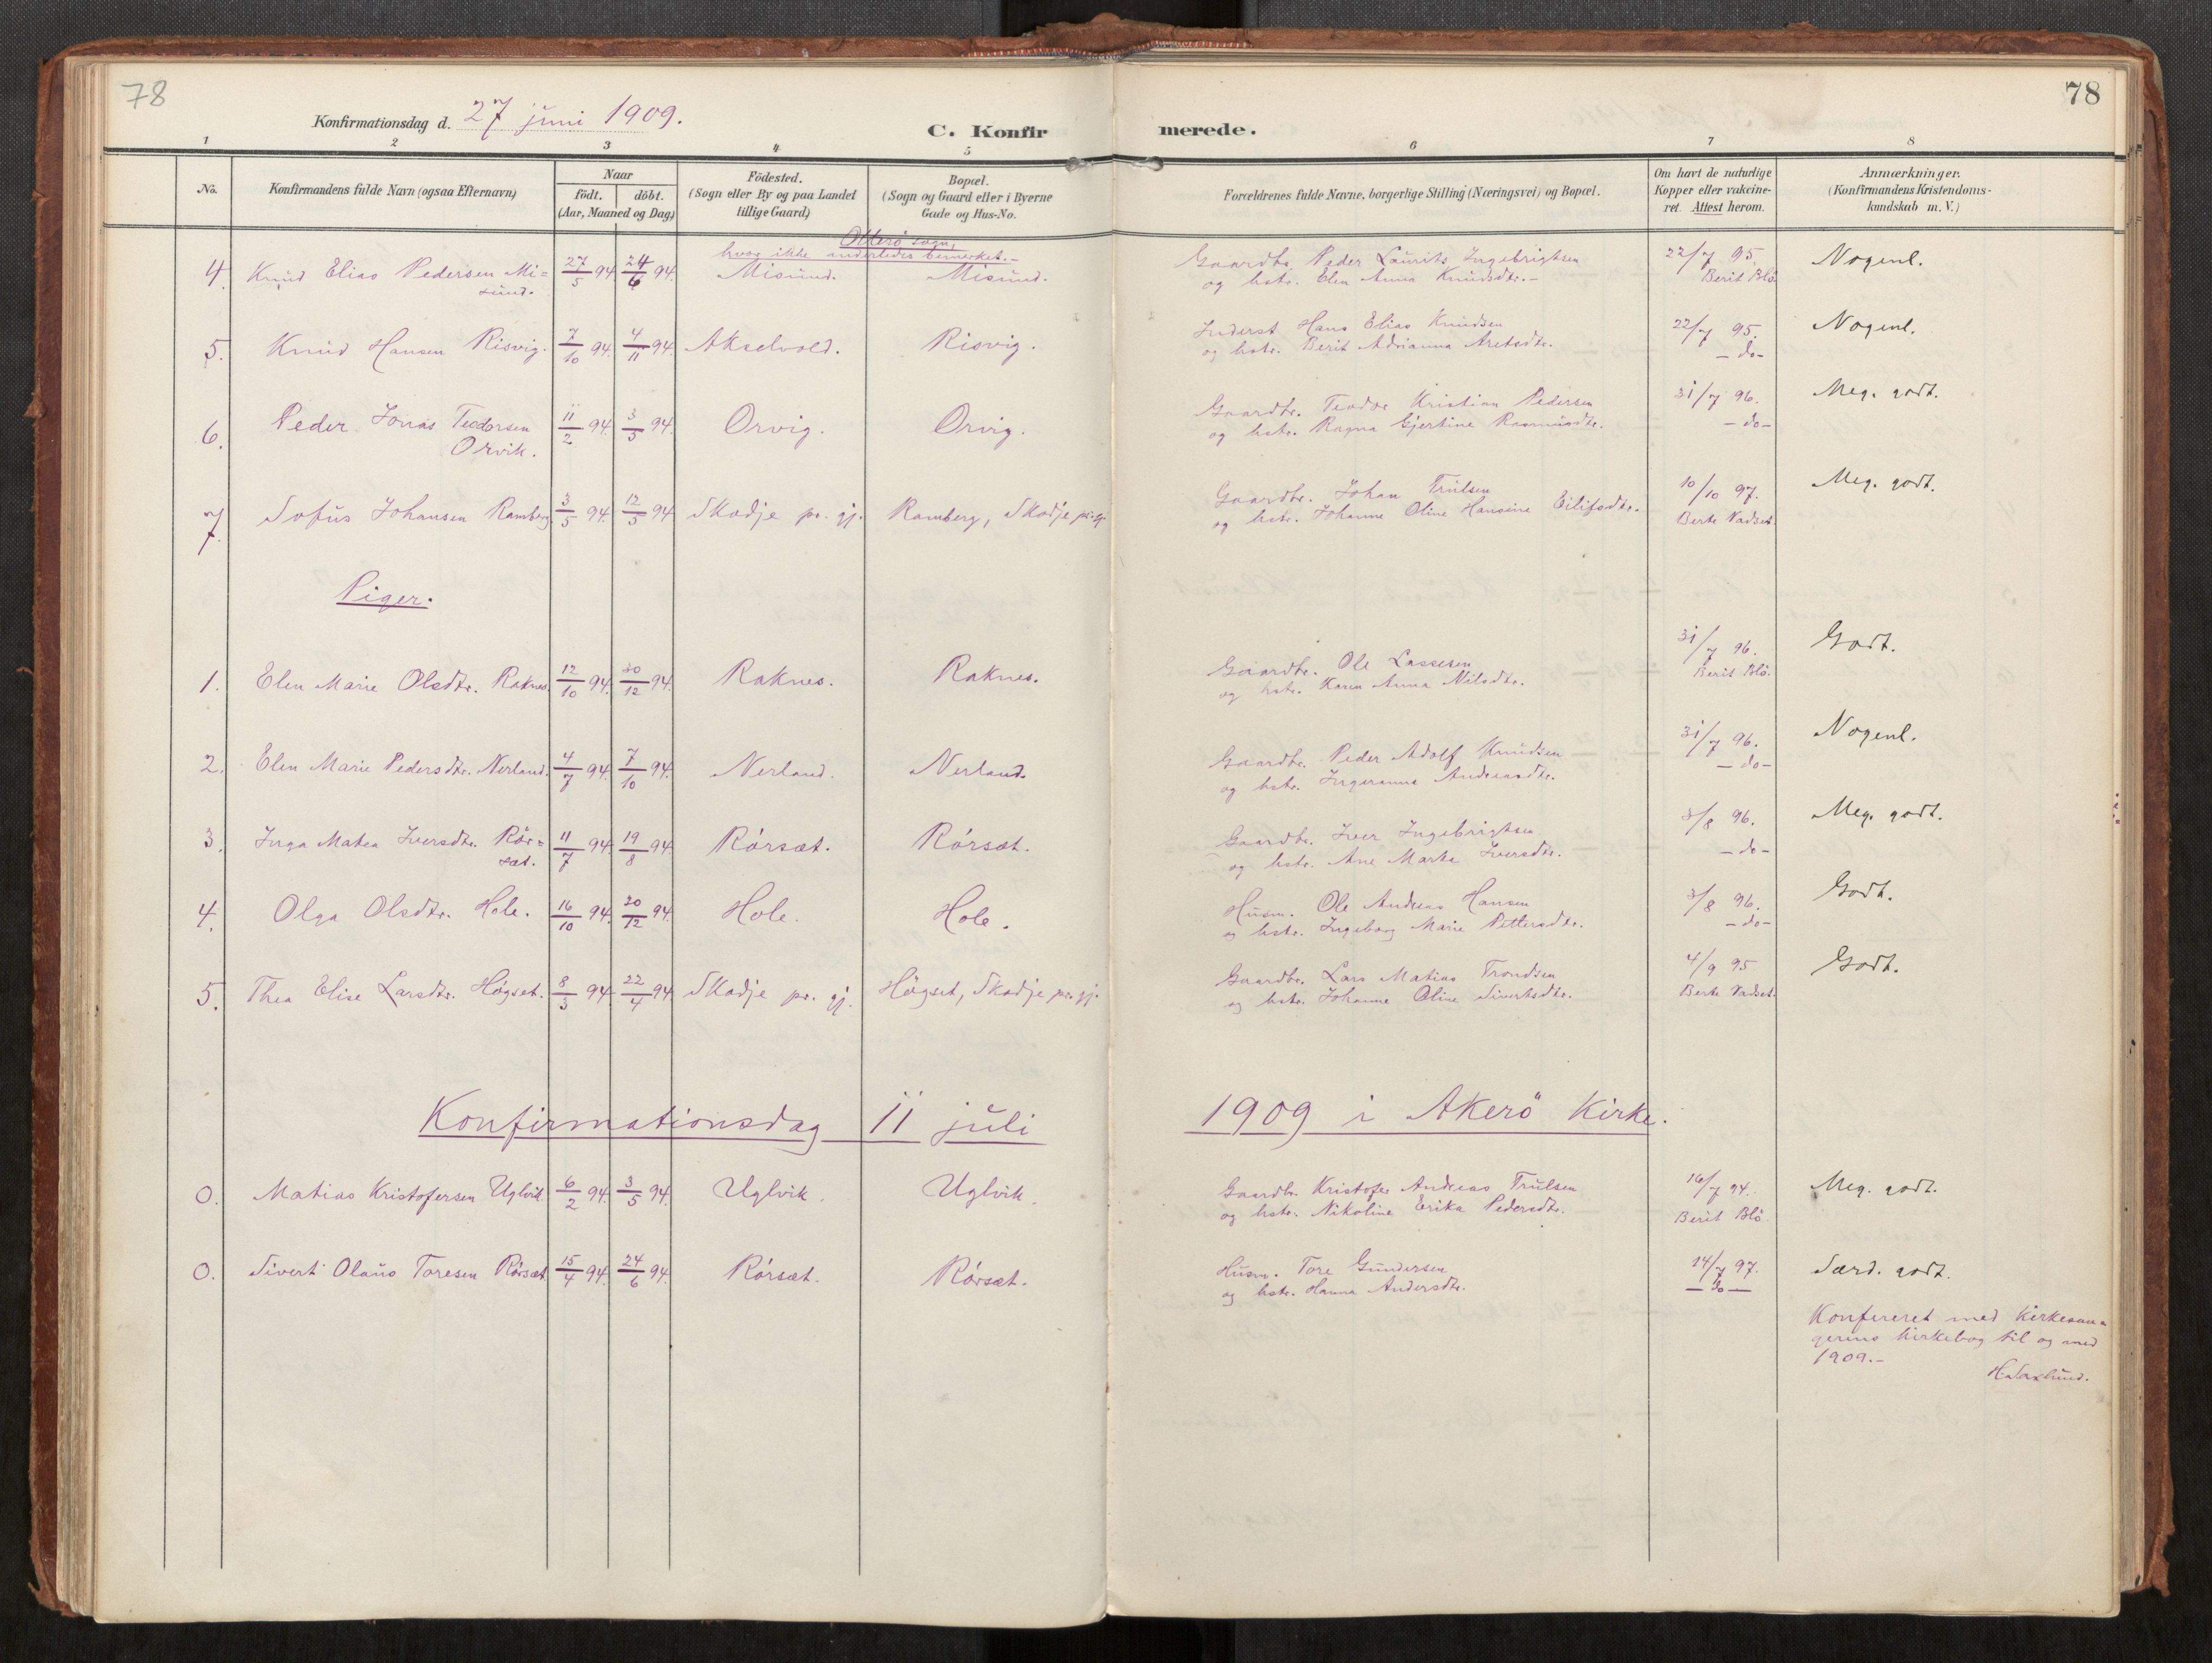 78
78
Konfirmationsdag d. 27 juni 1909.
C. Konfirmerede.
1 2 3 4 5 6 7 8
No.
Konfirmandens fulde Navn (ogsaa Efternavn)
Naar
födt. döbt.
(Aar, Maaned og Dag)
Födested.
(Sogn eller By og paa Landet
tillige Gaard)
Bopæl.
(Sogn og Gaard eller i Byerne
Gade og Hus-No.
Forældrenes fulde Navne, borgerlige Stilling (Næringsvei) og Bopæl.
Om havt de naturlige
Kopper eller vakcine-
ret. Attest herom.
Anmærkninger.
(Konfirmandens Kristendoms-
kundskab m. V.)
Otterö sogn,
hvor ikke anderledes bemerket.-
4. Knud Elias Pedersen Mi= 27/5 94. 24/6 94. Misund. Misund. Gaardbr. Peder Laurits Ingebrigtsen 22/7 95. Nogenl.
sund. og hstr. Elen Anna Knudsdtr.- Berit Blö.
5. Knud Hansen Risvig. 7/10 94. 4/11 94. Akselvold. Risvig. Inderst Hans Elias Knudsen 22/7 95. Nogenl.
og hstr. Berit Adrianna Aretsdtr. -do-
6. Peder Jonas Teodorsen 11/2 94. 3/5 94. Orvig. Orvig. Gaardbr. Teodor Kristian Pedersen 31/7 96. Meg. godt.
Orvik. og hstr. Ragna Gjertine Rasmusdtr. -do-
7. Sofus Johansen Ramberg 3/5 94. 12/5 94 Skodje pr. gj. Ramberg, Skodje pr. gj. Gaardbr. Johan Trulsen 10/10 97. Meg. godt.
og hstr. Johanne Oline Hansine Eilifsdtr. Berte Vadset.
Piger.
1. Elen Marie Olsdtr. Raknes. 12/10 94. 30/12 94. Raknes. Raknes. Gaardbr. Ole Lassesen 31/7 96. Godt.
og hstr. Karen Anna Nilsdtr. Berit Blö.
2. Elen Marie Pedersdtr. Nerland. 4/7 94. 7/10 94. Nerland. Nerland. Gaardbr. Peder Adolf Knudsen 31/7 96. Nogenl.
og hstr. Ingeranna Andreasdtr. -do-
3. Inga Matea Iversdtr. Rör= 11/7 94. 19/8 94. Rórsæt. Rórsæt. Gaardbr. Iver Ingebrigtsen 3/8 96. Meg. godt.
sæt. og hstr. Ane Marta Iversdtr. -do-
4. Olga Olsdtr. Hole. 16/10 94. 30/12 94. Hole. Hole. Husm. Ole Andreas Hansen 3/8 96. Godt.
og hstr. Ingeborg Marie Pettersdtr. -do-
5. Thea Elise Larsdtr. Högset. 8/3 94. 22/4 94. Skodje pr. gj. Högset, Skodje pr. gj. Gaardbr. Lars Matias Trondsen 4/9 95 Godt.
og hstr. Johanne Oline Sivertsdtr. Berte Vadset.
Konfirmationsdag 11 juli 1909 i Akerö Kirke.
0. Matias Kristofersen Uglvik. 6/2 94. 3/5 94. Uglvik. Uglvik. Gaardbr. Kristofer Andreas Trulsen 16/7 94. Meg. godt.
og hstr. Nikoline Erika Pedersdtr. Berit Blö.
0. Sivert Olaus Toresen Rórsæt 15/4 94. 24/6 94. Rórsæt. Rórsæt. Husm. Tore Gundersen 14/7 97. Særd. godt.
og hstr. Hanna Andersdtr. -do-
Konfereret med Kirkesan=
gerens Kirkebog til og med
1909.-
H. Saxlund.